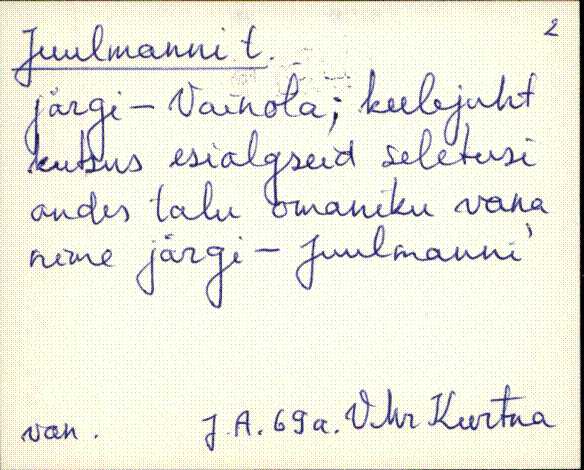 2
Juulmanni t.
järgi – Vainola; keelejuht
kutsus esialgseid seletusi
andes talu omaniku vana
nime järgi – Juulmanni'
van. J. A. 69 a. VNr Kurtna